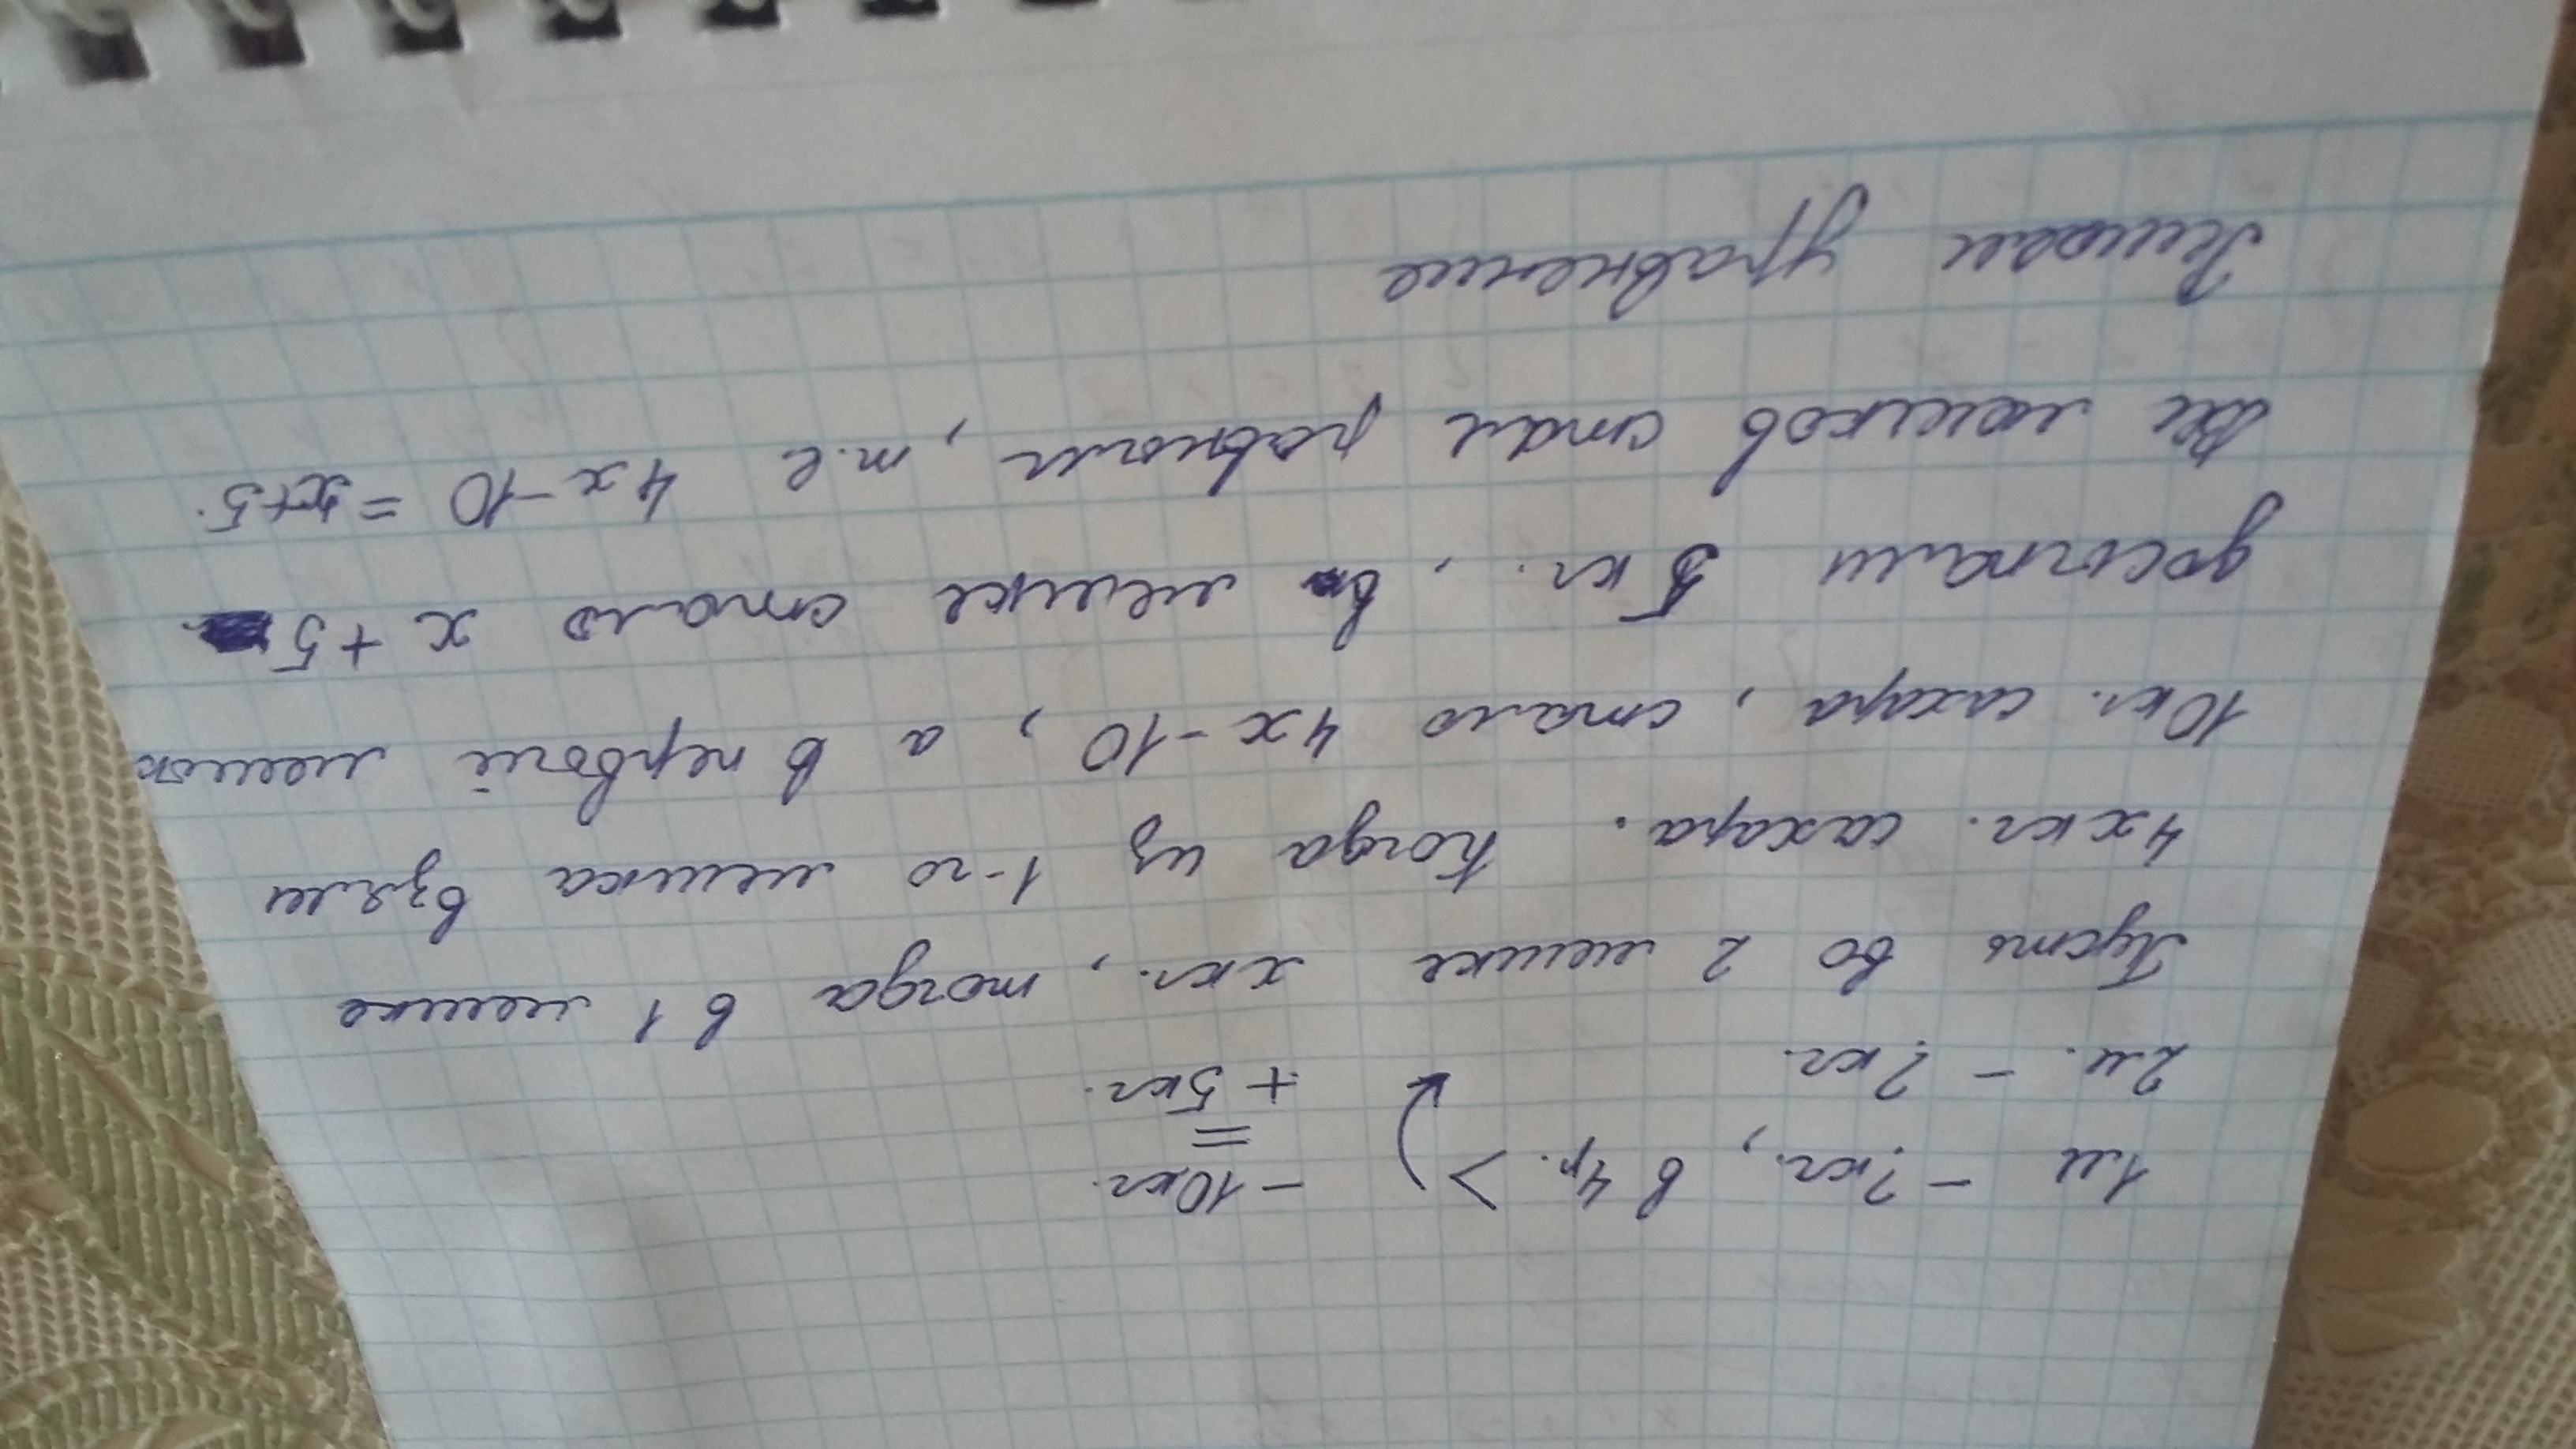 1м - ? кг., в 4р. > - 10кг.
=
2м. - ? кг. + 5кг.
Пусть во 2 мешке х кг., тогда в 1 мешке
4х кг. сахара. Когда из 1-го мешка взяли
10 кг. сахара, стало 4х-10, а в первый мешок
досыпали 5 кг., в мешке стало х +5
Вес мешков стал равным, т.е 4х-10 =х+5.
Решаем уравнение